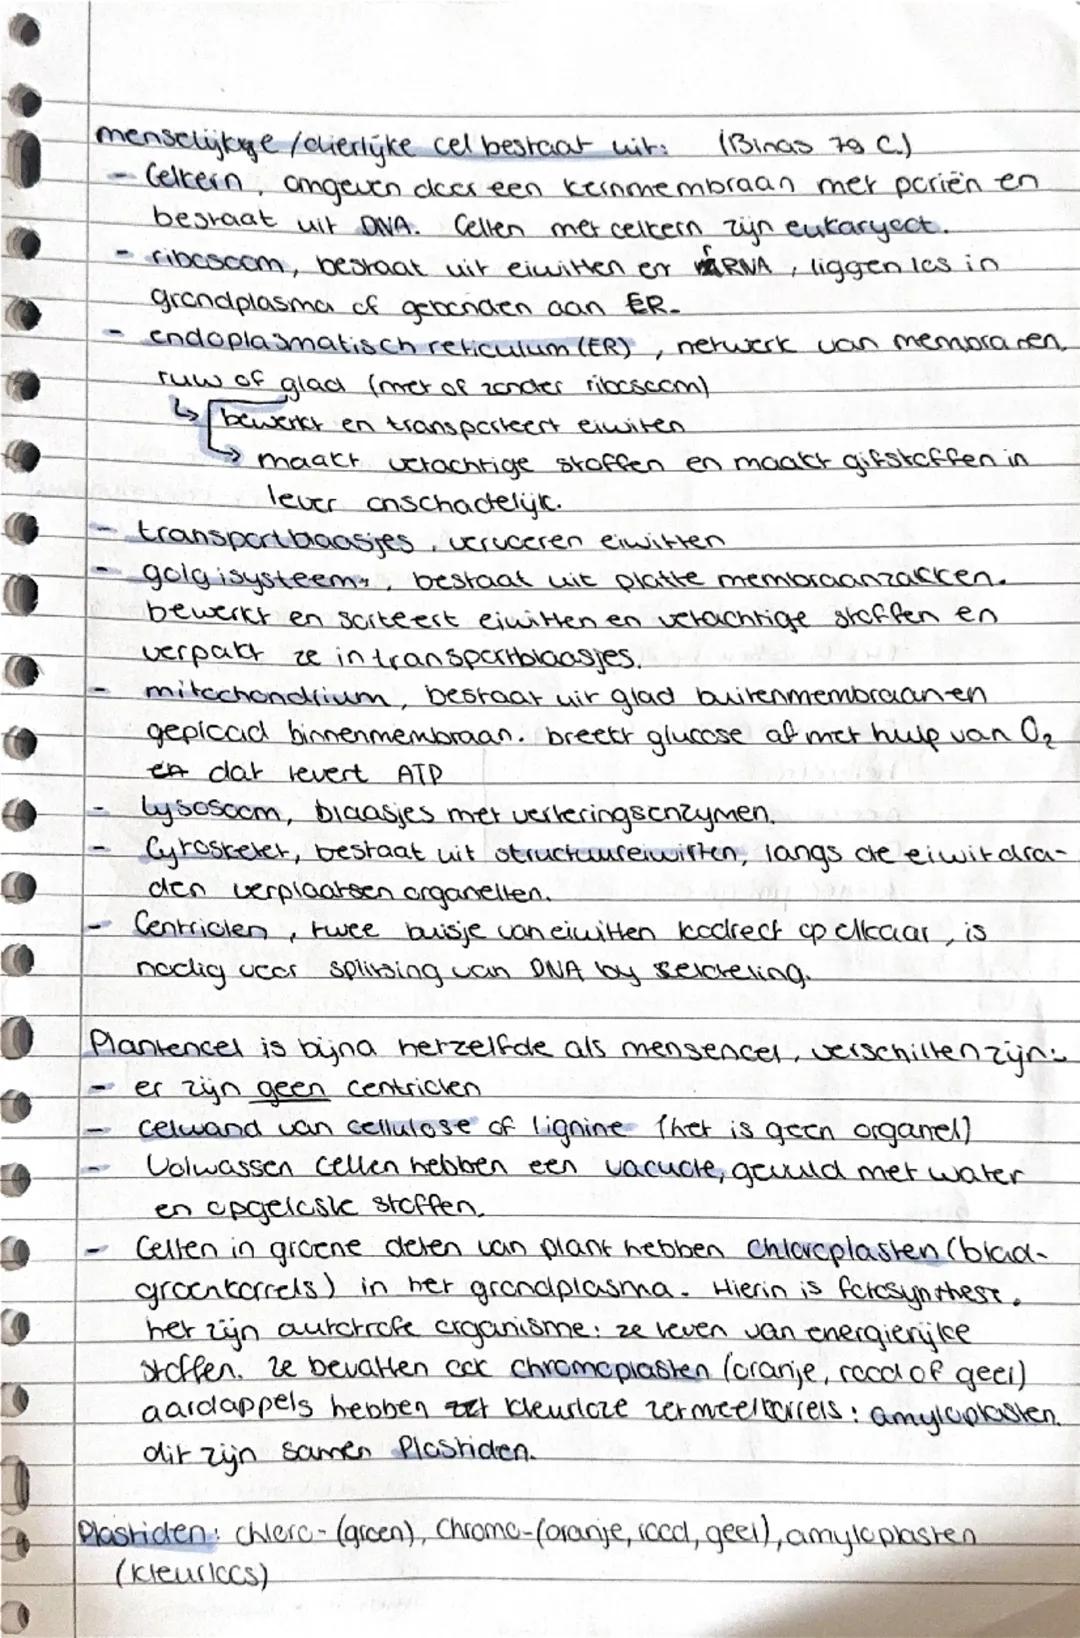 menselijke/dierlijke cel bestaat uit: (Binas 79 C.)
- Celkern, omgeven door een kernmembraan met poriën en
bestaat uit DNA. Cellen met celkern zijn eukaryoot.
- ribosoom, bestaat uit eiwitten en rRNA, liggen los in
grondplasma of gebonden aan ER.
- endoplasmatisch reticulum (ER), netwerk van membranen.
ruw of glad (met of zonder ribosoom)
↳ bewerkt en transporteert eiwiten
→ maakt vetachtige stoffen en maakt gifstoffen in
lever onschadelijk.
- transportblaasjes, vervoeren eiwitten
- golgisysteem, bestaat uit platte membraanzakken.
bewerkt en sorteert eiwitten en vetachtige stoffen en
verpakt ze in transportblaasjes.
- mitochondrium, bestaat uit glad buitenmembraan en
geplooid binnenmembraan. breekt glucose af met hulp van O₂
en dat levert ATP
- Lysosoom, blaasjes met verteringsenzymen.
- Cytoskelet, bestaat uit structuureiwitten, langs de eiwitdra-
den verplaatsen organellen.
- Centriolen, twee buisje van eiwitten loodrect op elkaar, is
nodig voor splitsing van DNA by celdeling.
Plantencel is bijna hetzelfde als mensencel, verschillen zijn:
- er zijn geen centriolen
- celwand van cellulose of lignine (het is geen organel)
- Volwassen cellen hebben een vacuole, gevuld met water
en opgeloste stoffen.
- Cellen in groene delen van plant hebben Chloroplasten (blad-
groenkorrels) in het grondplasma. Hierin is fotosynthese.
het zijn autotrofe organisme: ze leven van energierijke
stoffen. ze bevatten ook chromoplasten (oranje, rood of geel)
aardappels hebben kleurloze zetmeelkorrels: amyloplasten.
dit zijn samen Plastiden.
Plastiden: chloro- (groen), Chromo- (oranje, rood, geel), amyloplasten
(kleurloos)